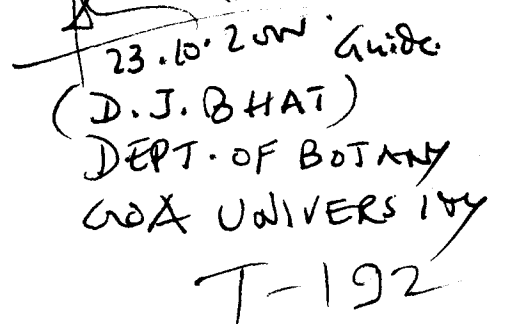 23.10.2000 Guide
(D.J. BHAT)
DEPT. OF BOTANY
GOA UNIVERSITY
T-192